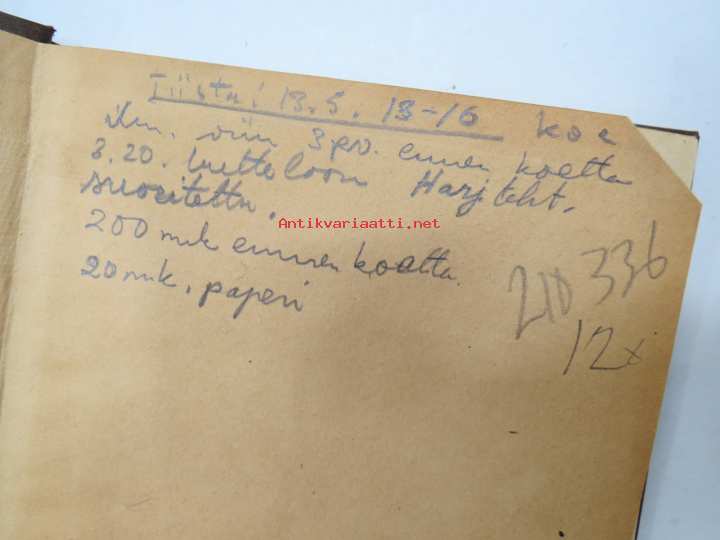 Tiistai 13.5. 13-16 koe
Ilm. viim 3 pv. ennen koetta
3.20. luetteloon Harj teht.
suoritettu.
Antikvariaatti.net
200 mk ennen koetta.
20 mk. paperi
210 336
12x